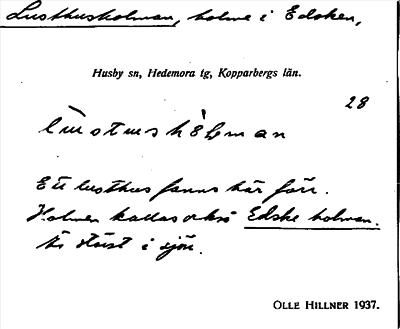 Lusthusholman, holme i Edsken,
Husby sn, Hedemora tg, Kopparbergs län.
28
Ett lusthus fanns här förr.
Holmen kallas också Edske holman.
Är störst i sjön.
OLLE HILLNER 1937.